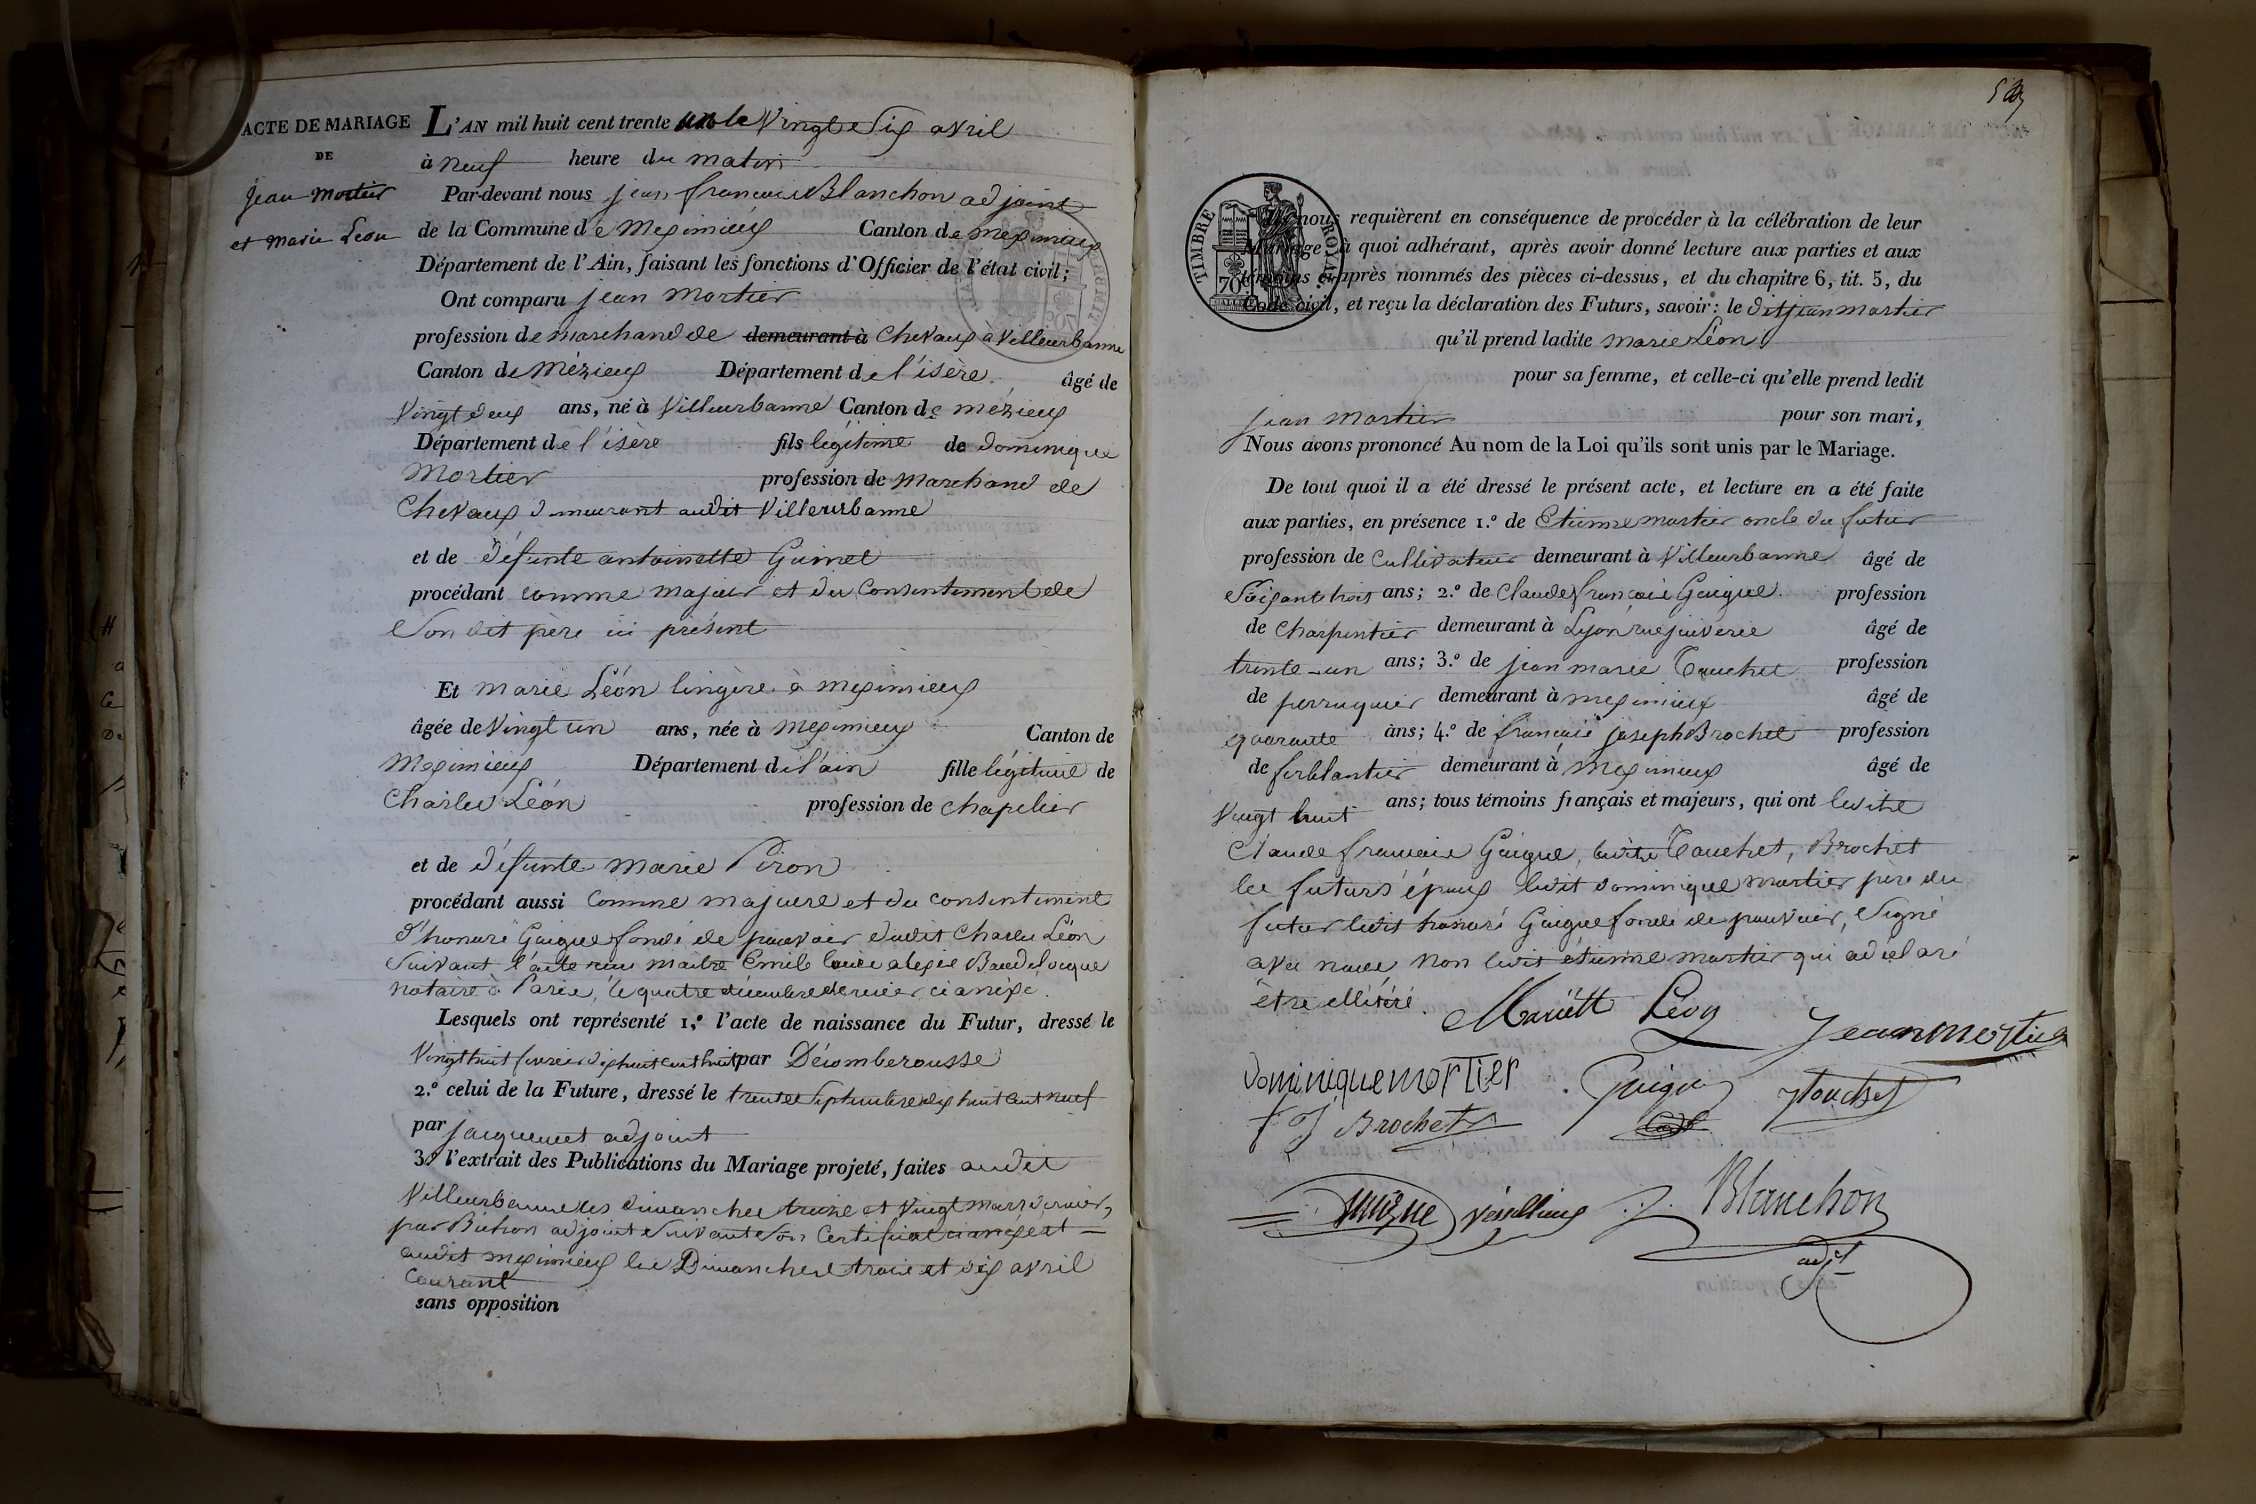 ACTE DE MARIAGE
DE
Jean Mortier
et Marie Léon
L'AN mil huit cent trente un le Vingt Six avril
à neuf heure du matin
Par-devant nous jean françois Blanchon adjoint
de la Commune de Meximieux Canton de Meximieux
Département de l'Ain, faisant les fonctions d'Officier de l'état civil;
Ont comparu jean Mortier
profession de marchand de demeurant à Chevaux à Villeurbanne
Canton de Mézieux Département de l'isère âgé de
Vingt deux ans, né à Villeurbanne Canton de mézieux
Département de l'isère fils légitime de dominique
Mortier profession de Marchand de
Chevaux demeurant audit Villeurbanne
et de défunte antoinette Guinet
procédant comme majeur et du Consentement de
Son dit père ici présent
Et Marie Léon lingère à meximieux
âgée de Vingt un ans, née à Meximieux Canton de
Meximieux Département de l'ain fille légitime de
Charles Léon profession de chapelier
et de défunte Marie Piron
procédant aussi Comme majeure et du consentement
d'honoré Guigue fondé de pouvoir dudit Charles Léon
Suivant l'acte reçu maître Emile alexis Baudelocque
notaire à Paris, le quatre décembre dernier, ci annéxé.
Lesquels ont représenté 1.º l'acte de naissance du Futur, dressé le
Vingt huit fevrier dix huit cent huit par Décomberousse
2.º celui de la Future, dressé le trente Septembre dix huit cent neuf
par jacquemet adjoint
3.º l'extrait des Publications du Mariage projeté, faites audit
Villeurbanne les dimanches treize et Vingt Mars dernier,
par adjoint Suivant Son Certificat ci annéxé et
audit meximieux les Dimanches trois et dix avril
Courant
sans opposition
TIMBRE ROYAL
70
nous requièrent en conséquence de procéder à la célébration de leur
Mariage, à quoi adhérant, après avoir donné lecture aux parties et aux
témoins ci-après nommés des pièces ci-dessus, et du chapitre 6, tit. 5, du
Code civil, et reçu la déclaration des Futurs, savoir: le dit jean Mortier
qu'il prend ladite Marie Léon
pour sa femme, et celle-ci qu'elle prend ledit
jean Mortier pour son mari,
Nous avons prononcé Au nom de la Loi qu'ils sont unis par le Mariage.
De tout quoi il a été dressé le présent acte, et lecture en a été faite
aux parties, en présence 1.º de Etienne Mortier oncle du futur
profession de Cultivateur demeurant à Villeurbanne âgé de
Soixante trois ans; 2.º de Claude françois Guigue profession
de Charpentier demeurant à Lyon rue juiverie âgé de
trente-un ans; 3.º de jean marie Touchet profession
de perruquier demeurant à Meximieux âgé de
quarante ans; 4.º de françois joseph Brochet profession
de ferblantier demeurant à Meximieux âgé de
Vingt huit ans; tous témoins français et majeurs, qui ont lesdits
Claude françois Guigue, Touchet, Brochet
les futurs époux ledit dominique Mortier père du
futur ledit honoré Guigue fondé de pouvoir, Signé
avec nous Non ledit étienne Mortier qui a déclaré
être illitéré.
Mariëtt Léon
Jean mortier
dominique mortier
Guigue
Touchet
f J Brochet
Guigue
J. Blanchon
adjt